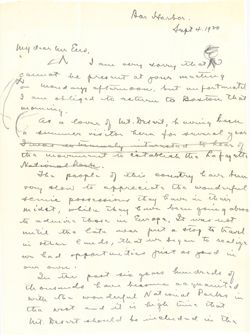 Bar Harbor.
Sept 4, 1920
My dear Mr Eno,
I am very sorry that I
cannot be present at your meeting
on Monday afternoon, but unfortunately
I am obliged to return to Boston that
morning.
As a lover of Mt. Desert, having been
a summer visitor here for several years
I was extremely interested to hear of
the movement to establish the Lafayette
National Park.
The people of this country have been
very slow to appreciate the wonderful
scenic possessions they have in their
midst, while they have been going abroad
to admire those in Europe. It was not
until the late war put a stop to travel
in other lands, that we began to realize
we had opportunities just as good in
our own.
In the past six years hundreds of
thousands have become acquainted
with the wonderful National Parks in
the west and it is high time that
Mt Desert should be included in the